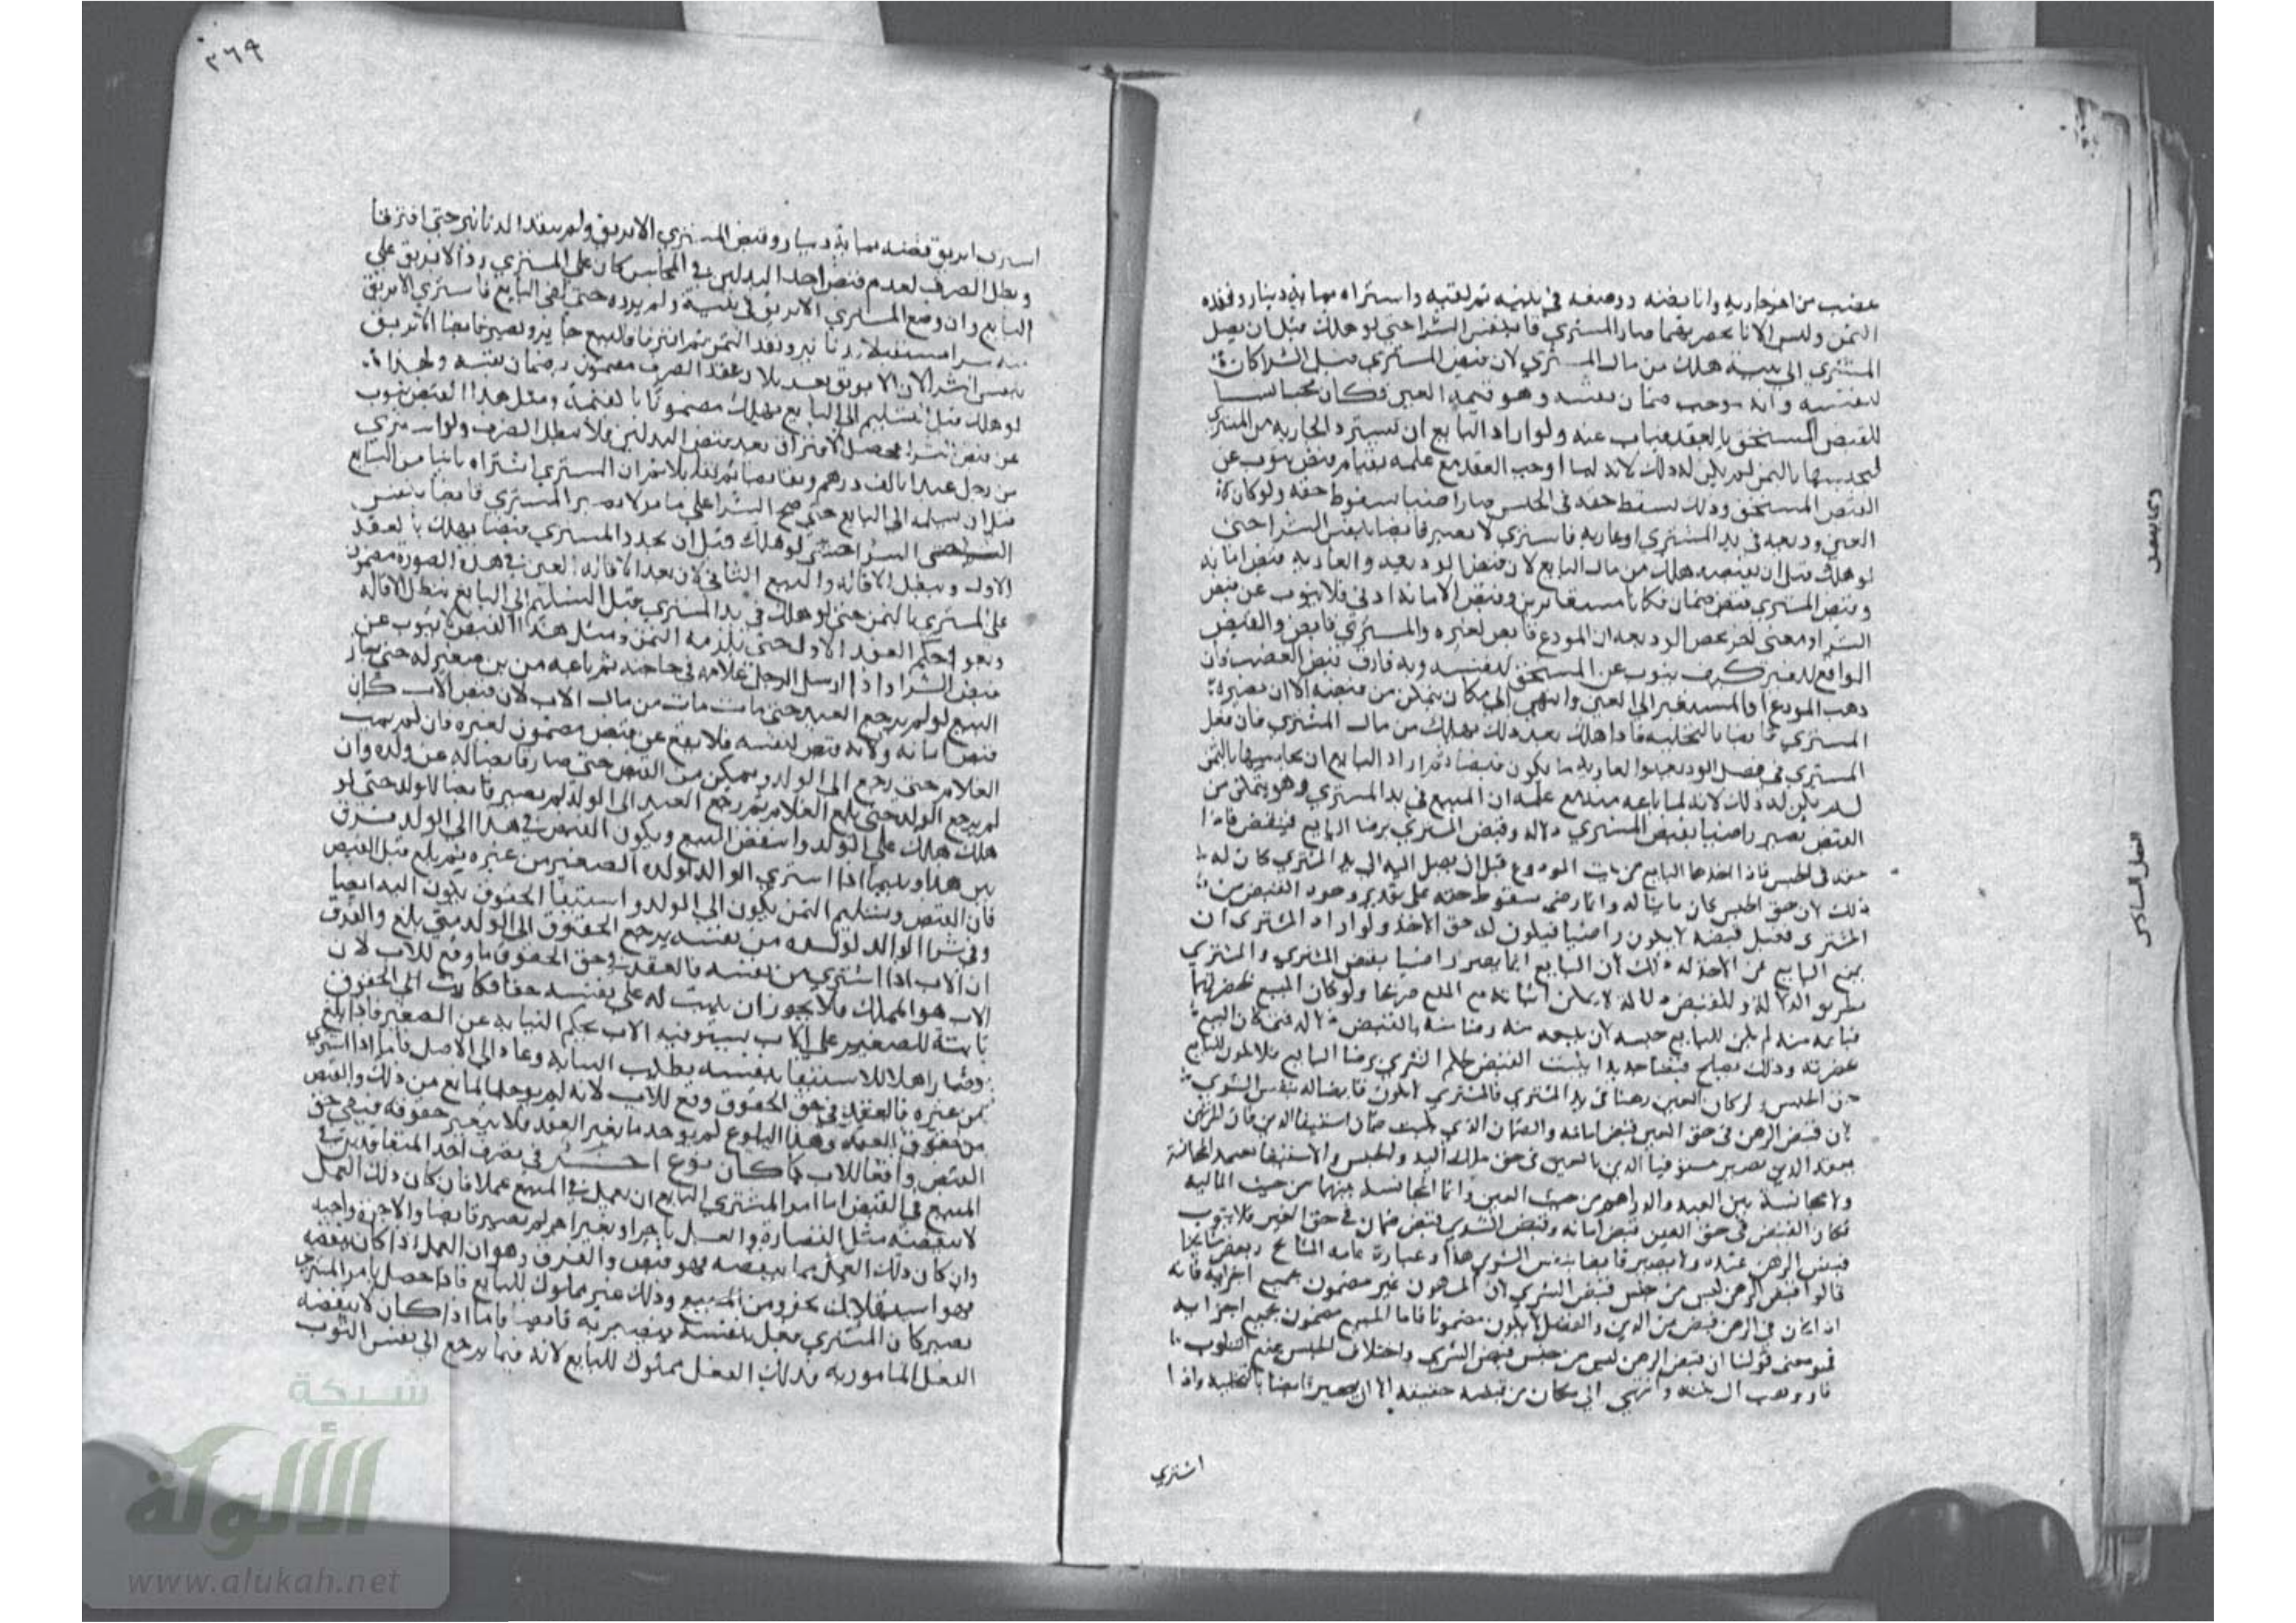 غصب من اخر جارية وانا بفضه ووضعه في بيته ثم لقيه واشتراه بماية دينار ونقده
الثمن وليس الانا بحضرتهما صار المشتري قابضا بنفس الشرا حتى لو هلك قبل ان يصل
المشتري الى بيته هلك من مال المشتري لان قبض المشتري قبل الشرا كان
لنفسه وانه يوجب ضمان نفسه وهو قيمة العين فكان مجانسا
للقبض المستحق بالعقد فناب عنه ولو اراد البايع ان يسترد الجارية من المشتري
ليحبسها بالثمن لم يكن له ذلك لانه لما اوجب العقد مع علمه بقيام قبض ينوب عن
القبض المستحق وذلك يسقط حقه في الحبس صار راضيا بسقوط حقه ولو كان
العين وديعة في يد المشتري او عارية فاشترى لا يصير قابضا بنفس الشرا حتى
لو هلك قبل ان يقبضه هلك من مال البايع لان قبض الوديعة والعارية قبض امانة
وقبض المشتري قبض ضمان فكانا متغايرين وقبض الامانة ادنى فلا ينوب عن قبض
الشرا ومعنى اخر يخص الوديعة ان المودع قابض لغيره والمشتري قابض والقبض
الواقع لغيره كيف ينوب عن المستحق لنفسه وبه فارق قبض الغصب فان
ذهب المودع او المستعير الى العين وانتهى الى مكان يتمكن من قبضه الان يصير
المشتري قابضا بالتخلية فاذا هلك بعد ذلك يهلك من مال المشتري فان فعل
المشتري في فصل الوديعة والعارية ما يكون قبضا ثم اراد البايع ان يحبسها بالثمن
لم يكن له ذلك لانه لما باعه منه مع علمه ان المبيع في يد المشتري وهو يتمكن من
القبض يصير راضيا بقبض المشتري دلالة وقبض المشتري برضا البايع
حقه في الحبس فاذا اخذها البايع من بيت المودوع قبل ان يصل اليه الى يد المشتري كان له
ذلك لان حق الحبس كان ثابتا له وانما رضي بسقوط حقه على تقدير وجود القبض من
المشتري فقبل قبضه لا يكون راضيا فيكون له حق الاخذ ولو اراد المشتري ان
يمنع البايع من الاخذ له ذلك لان البايع انما يصير راضيا بقبض المشتري والمشتري
بطريق الدلالة والقبض دلالة لا يمكن اثباته مع المنع صريحا ولو كان المبيع بحضرتهما
فباعه منه لم يكن للبايع حبسه لان بيعه منه رضا منه بالقبض دلالة
بحضرته وذلك يصلح قبضا جديدا يثبت القبض بحكم الشرى برضا البايع فلا يكون للبايع
حق الحبس ولو كان العين رهنا في يد المشتري فالمشتري لا يكون قابضا له بنفس الشرى
لان قبض الرهن في حق العين قبض امانة والضمان الذي يثبت ضمان استيفا الدين فان المرتهن
بعقد الدين يصير مستوفيا الدين بالعين في حق ملك اليد والحبس والاستيفا يعتمد المجانسة
ولا مجانسة بين العبد والدراهم من حيث العين وانما المجانسة بينهما من حيث المالية
فكان القبض في حق العين قبض امانة وقبض الشرى قبض ضمان في حق العين فلا ينوب
قبض الرهن عنه ولا يصير قابضا بنفس الشرى هذا وعبارة عامة المشايخ وبعض مشايخنا
قالوا قبض الرهن ليس من جنس قبض الشرى لان المرهون غير مضمون بجميع اجزايه فانه
اذا كان في الرهن فضل من الدين والفضل لا يكون مضمونا فاما المبيع مضمون بجميع اجزايه
فهو معنى قولنا ان قبض الرهن ليس من جنس قبض الشرى واختلاف الجنس يمنع
فان ذهب الى بيته وانتهى الى مكان من قبضه حقيقة الان يصير قابضا بالتخلية واذا
اشتري
الفصل السادس
٢٦٩
اشترى ابريق فضة بماية دينار وقبض المشتري الابريق ولم ينقد الدنانير حتى افترقا
وبطل الصرف لعدم قبض احد البدلين في المجلس كان على المشتري رد الابريق على
البايع وان وضع المشتري الابريق في بيته ولم يرده حتى لقي البايع فاشترى الابريق
منه شرا مستقبلا بدنانير ونقد الثمن ثم افترقا فالبيع جايز ويصير قابضا الابريق
بنفس الشرا لان الابريق بعد بطلان عقد الصرف مضمون بضمان نفسه ولهذا
لو هلك قبل التسليم الى البايع يهلك مضمونا بالقيمة ومثل هذا القبض ينوب
عن قبض الشرا فحصل الافتراق بعد قبض البدلين فلا يبطل الصرف ولو اشترى
من رجل عبدا بالف درهم وتقابضا ثم تقايلا ثم ان المشتري اشتراه ثانيا من البايع
قبل ان يسلمه الى البايع حتى صح الشرا على ما مر لا يصير المشتري قابضا بنفس
الشرا حتى لو هلك قبل ان يجدد المشتري قبضا يهلك بالعقد
الاول ويبطل الاقالة والبيع الثاني لان بعد الاقالة العين في هذه الصورة مضمون
على المشتري بالثمن حتى لو هلك في يد المشتري قبل التسليم الى البايع تبطل الاقالة
ويعود حكم العقد الاول حتى يلزمه الثمن ومثل هذا القبض لا ينوب عن
قبض الشرا واذا ارسل الرجل غلامه في حاجته ثم باعه من ابن صغير له حتى جاز
البيع لو لم يرجع العبد حتى مات مات من مال الاب لان قبض الاب كان
قبض امانة ولانه قبض لنفسه فلا يقع عن قبض مضمون لغيره فان لم يمت
الغلام حتى رجع الى الوالد وتمكن من القبض حتى صار قابضا له عن ولده وان
لم يرجع الى الوالد حتى بلغ الغلام ثم رجع العبد الى الوالد لم يصير قابضا للولد حتى لو
هلك هلك على الوالد وانتقض البيع ويكون القبض في هذا الى الولد فرق
بين هذا وبينما اذا اشترى الوالد لولده الصغير من غيره ثم بلغ قبل القبض
فان القبض وتسليم الثمن يكون الى الوالد واستيفا الحقوق يكون اليه ايضا
وفي شرا الوالد لولده من نفسه يرجع الحقوق الى الولد متى بلغ والفرق
ان الاب اذا اشترى من نفسه فالعقد في حق الحقوق ما وقع للاب لان
الاب هو المملك فلا يجوز ان يثبت له على نفسه حقا فكانت الى الحقوق
ثابتة للصغير على الاب يستوفيه الاب بحكم النيابة عن الصغير فاذا بلغ
وصار اهلا للاستيفا بنفسه بطلت النيابة وعاد الى الاصل فاما اذا اشترى
من غيره فالعقد في حق الحقوق وقع للاب لانه لم يوجد المانع من ذلك والقبض
من حقوق العقد وبعد البلوغ لم يوجد ما يغير العقد فلا يتغير حقوقه فبقي حق
القبض واقعا للاب كما كان نوع اخر في تصرف احد المتعاقدين في
المبيع في القبض اذا امر المشتري البايع ان يعمل في المبيع عملا فان كان ذلك العمل
لا ينقصه مثل القصارة والغسل باجر او بغير اجر لم يصير قابضا والاجرة واجبة
وان كان ذلك العمل مما ينقصه فهو قبض والفرق وهو ان العمل اذا كان ينقصه
فهو استهلاك بجزء من المبيع وذلك غير مملوك للبايع فاذا حصل بامر المشتري
يصير كان المشتري فعل بنفسه فيصير به قابضا واما اذا كان لا ينقصه
الفعل المامور به فذلك الفعل مملوك للبايع لانه فيما يرجع الى نفس الثوب
شبكة
الألوكة
www.alukah.net